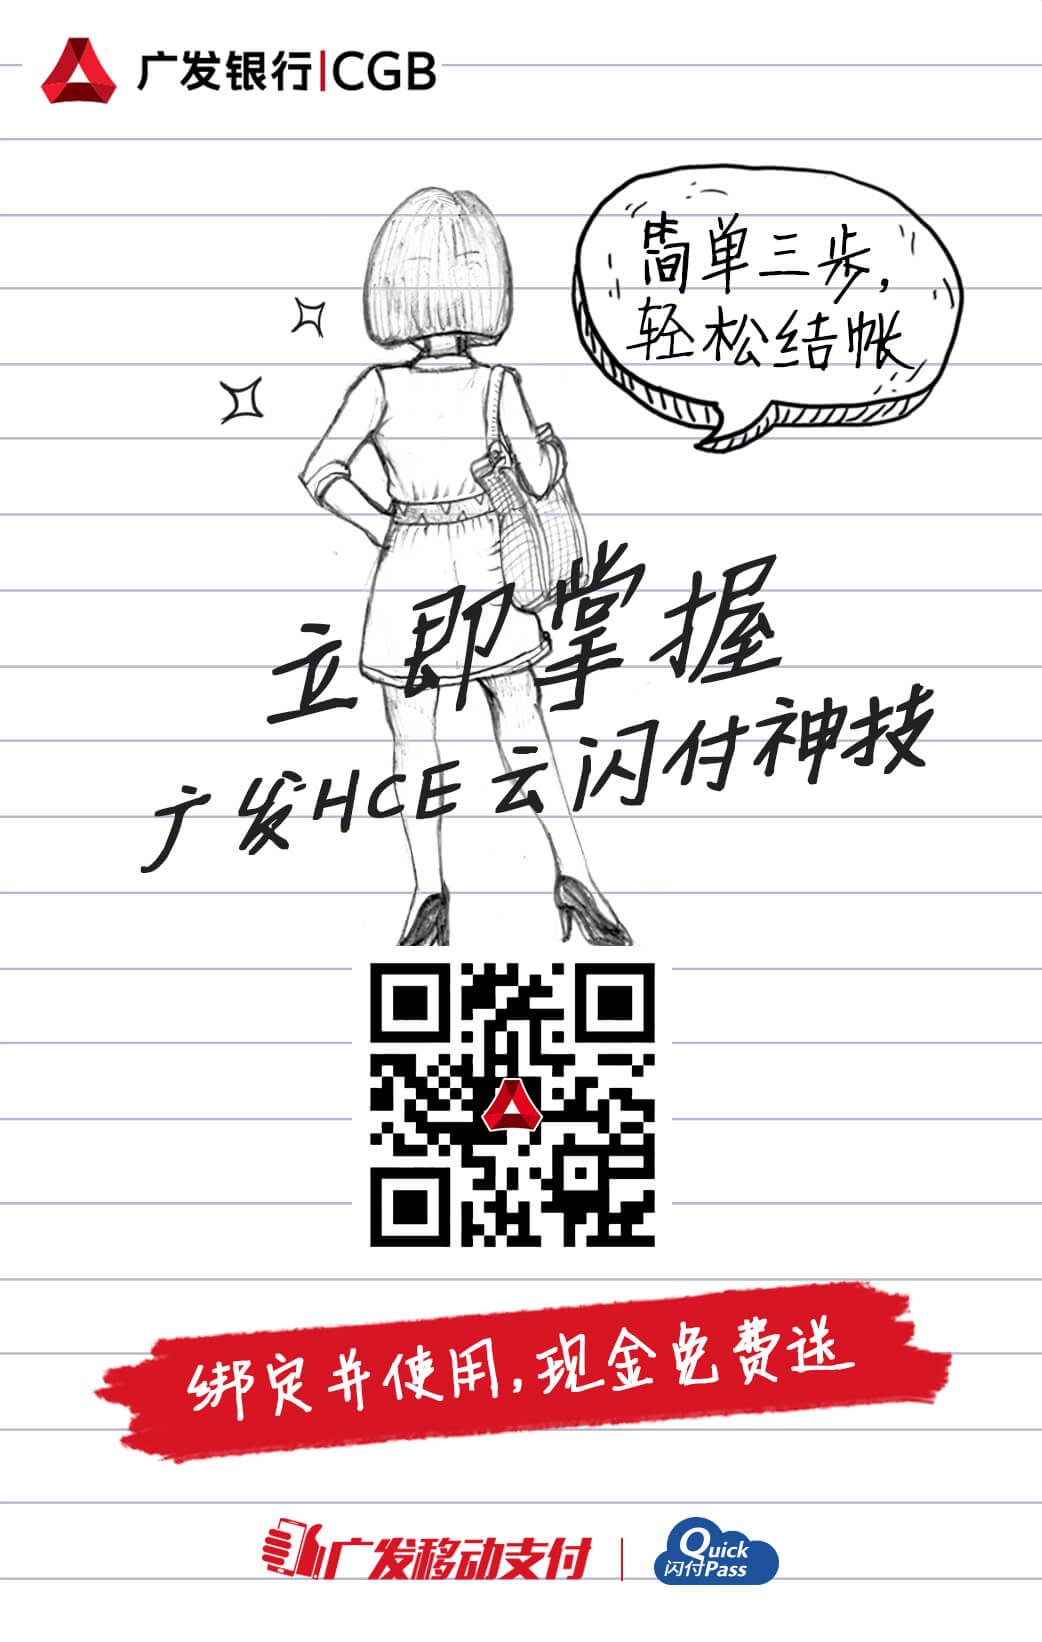 广发银行|CGB
简单三步,
轻松结帐
立即掌握
广发HCE云闪付神技
绑定并使用,现金免费送
广发移动支付
Quick
闪付Pass